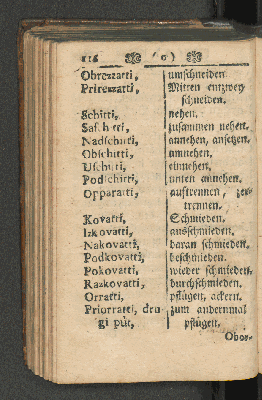 116 ( o )
Obrezzatti, umschneiden.
Prirezzatti, Mitten entzwey
schneiden.
Schitti, nehen.
Saschitti, zusammen nehen.
Nadschitti, annehen, ansetzen.
Obschitti, umnehen.
Uschitti, einnehen.
Podschitti, unten annehen.
Opparatti, auftrennen, zer-
trennen.
Kovatti, Schmieden.
Izkovatti, ausschmieden.
Nakovatti, daran schmieden.
Podkovatti, beschmieden.
Pokovatti, wieder schmieden.
Razkovatti, durchschmieden.
Orratti, pflügen, ackern.
Priorratti, dru- zum andernmal
gi püt, pflügen.
Obor-